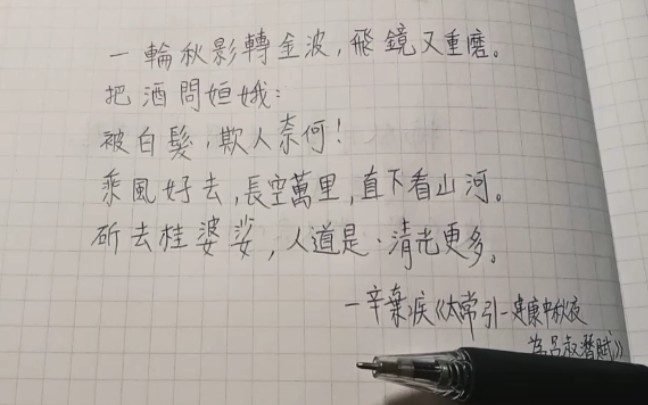 一輪秋影轉金波，飛鏡又重磨。
把酒問姮娥：
被白髮，欺人奈何！
乘風好去，長空萬里，直下看山河。
斫去桂婆娑，人道是、清光更多。
—辛棄疾《太常引—建康中秋夜
為呂叔潛賦》